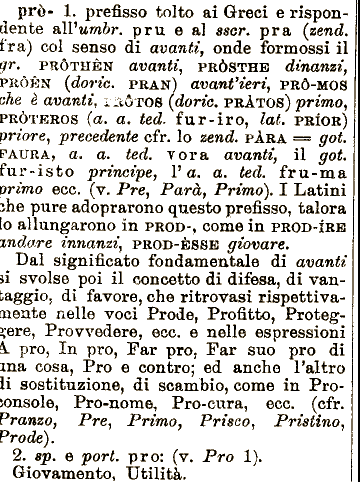 prò- 1. prefisso tolto ai Greci e rispon-
dente all'umbr. pru e al sscr. pra (zend.
fra) col senso di avanti, onde formossi il
gr. PRÔTHÊN avanti, PRÒSTHE dinanzi,
PRÒÊN (doric. PRAN) avant'ieri, PRÔ-MOS
che è avanti, PRÔTOS (doric. PRÀTOS) primo,
PRÒTEROS (a. a. ted. fur-iro, lat. PRÍOR)
priore, precedente cfr. lo zend. PÀRA = got.
FAURA, a. a. ted. vora avanti, il got.
fur-isto principe, l'a. a. ted. fru-ma
primo ecc. (v. Pre, Parà, Primo). I Latini
che pure adoprarono questo prefisso, talora
lo allungarono in PROD-, come in PROD-ÍRE
andare innanzi, PROD-ÈSSE giovare.
Dal significato fondamentale di avanti
si svolse poi il concetto di difesa, di van-
taggio, di favore, che ritrovasi rispettiva-
mente nelle voci Prode, Profitto, Proteg-
gere, Provvedere, ecc. e nelle espressioni
A pro, In pro, Far pro, Far suo pro di
una cosa, Pro e contro; ed anche l'altro
di sostituzione, di scambio, come in Pro-
console, Pro-nome, Pro-cura, ecc. (cfr.
Pranzo, Pre, Primo, Prisco, Pristino,
Prode).
2. sp. e port. pro: (v. Pro 1).
Giovamento, Utilità.